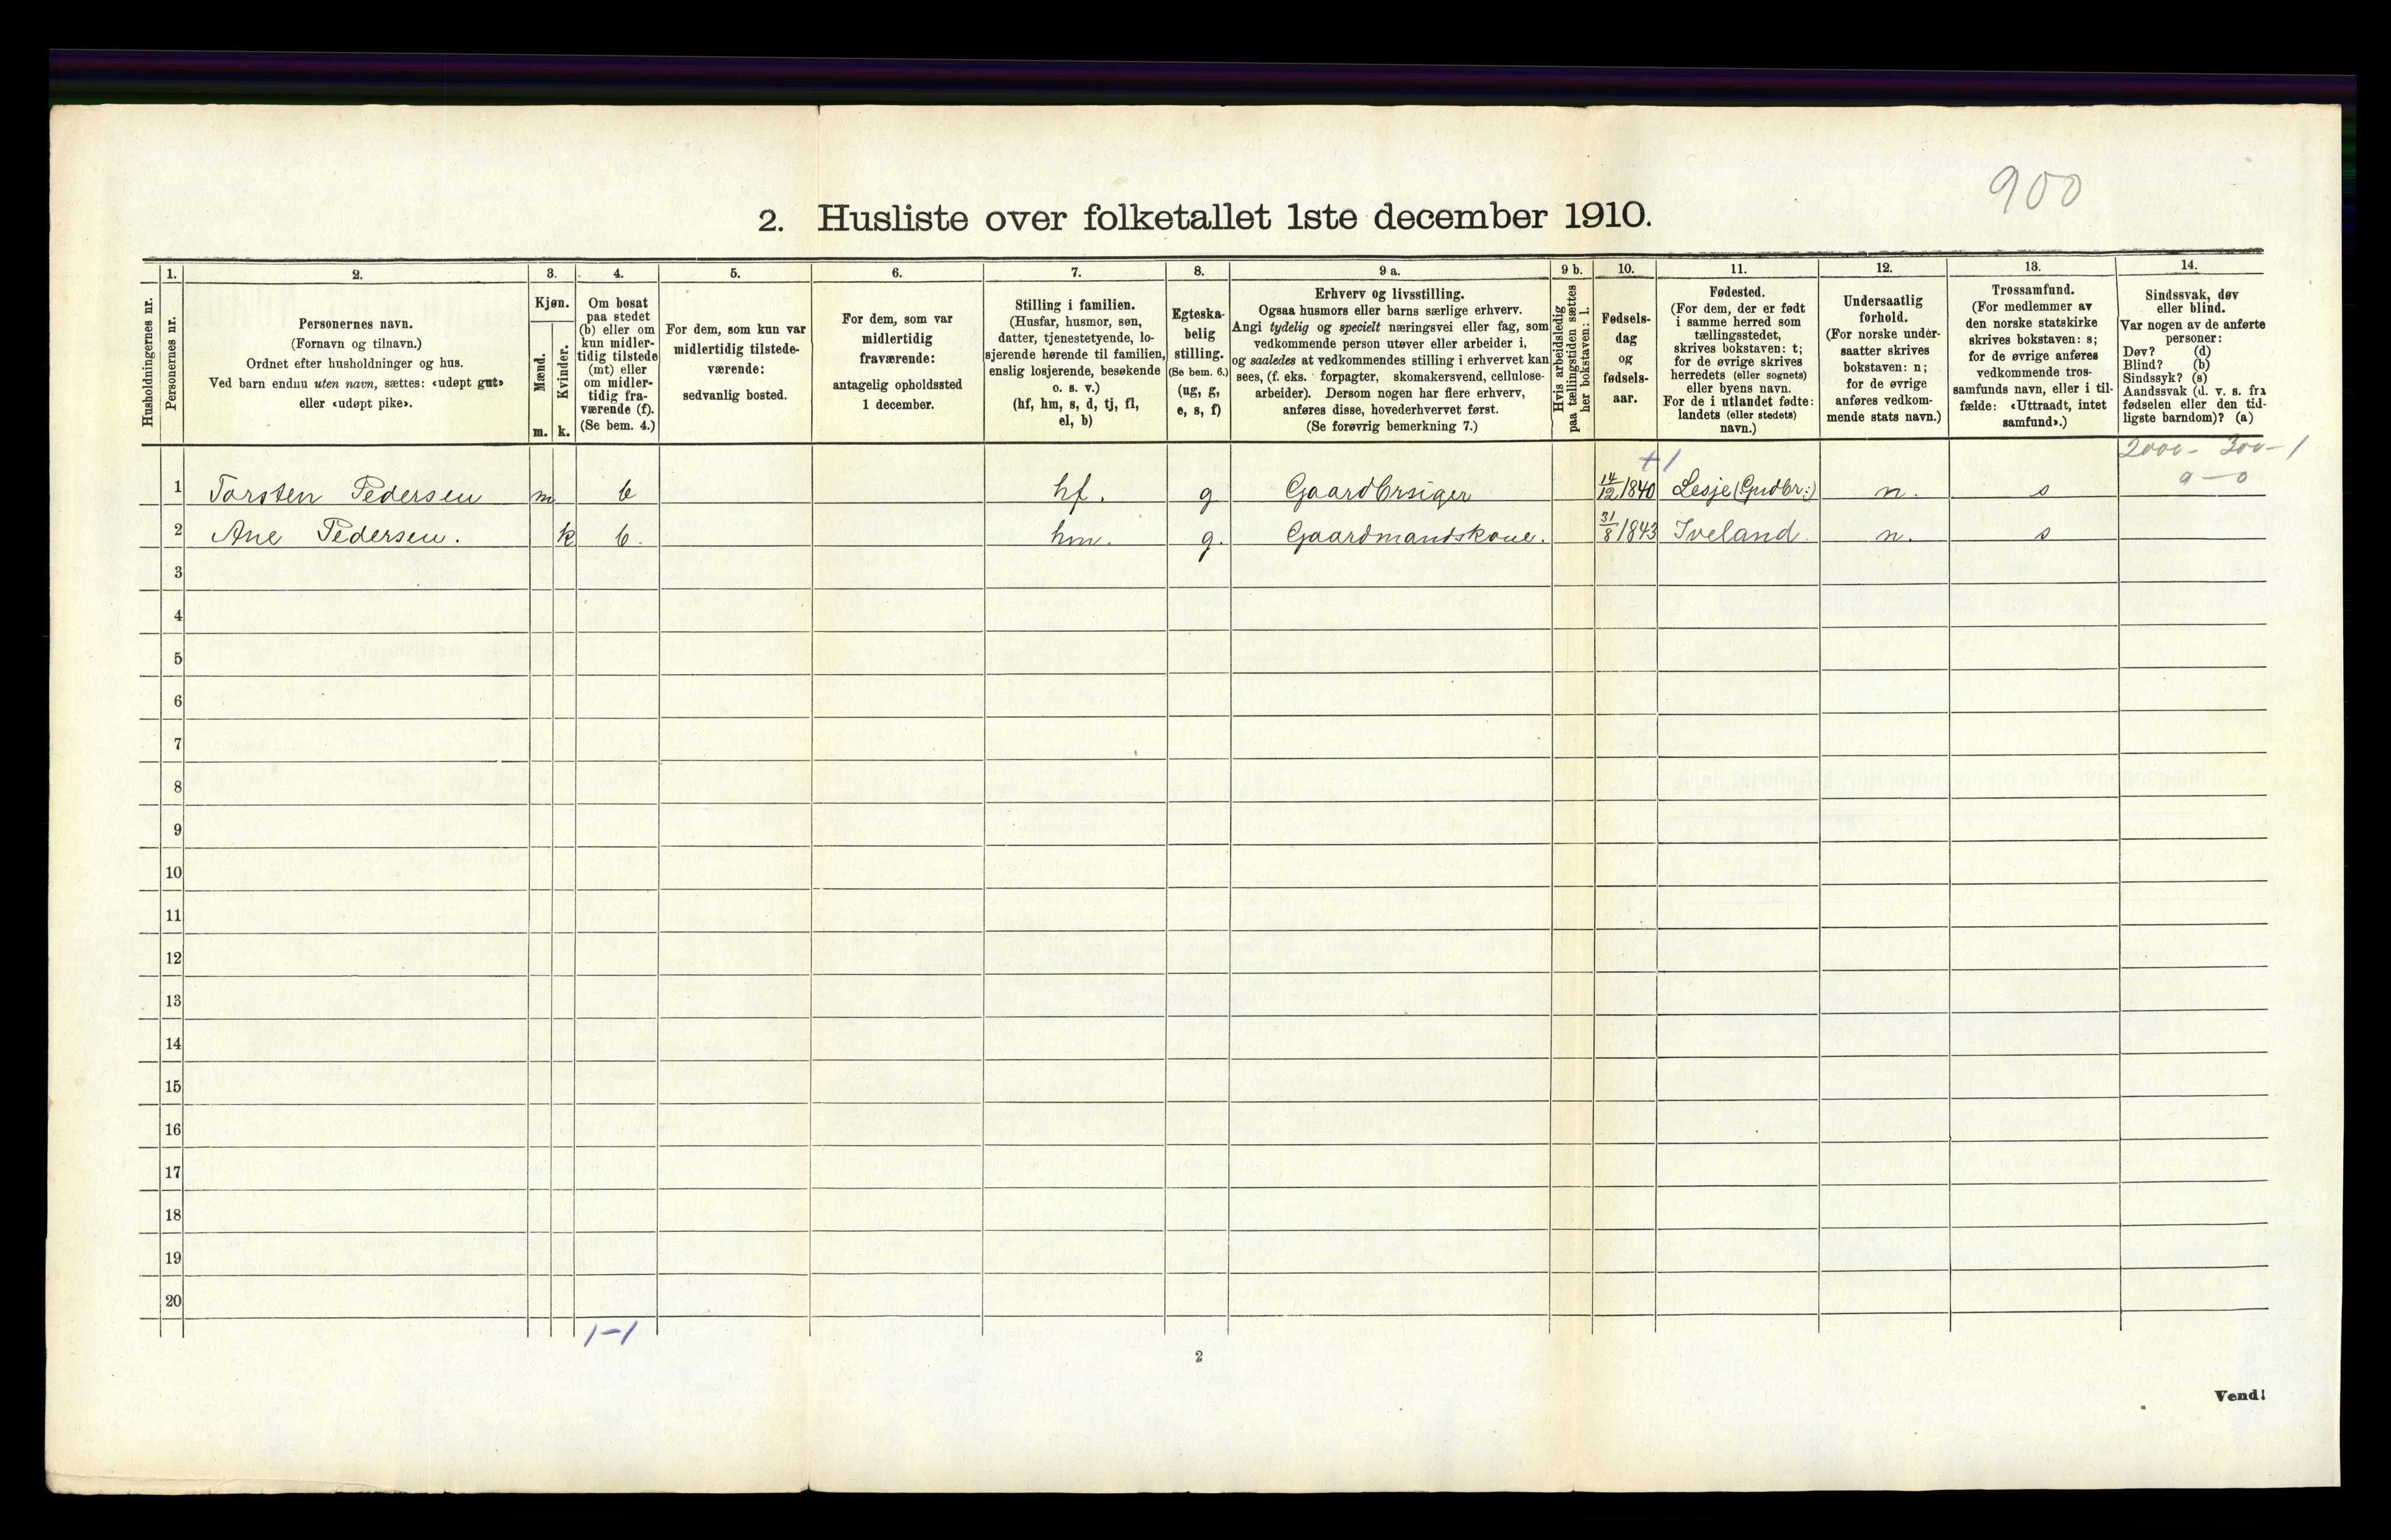 900
2. Husliste over folketallet 1ste december 1910.
1. 2. 3. 4. 5. 6. 7. 8. 9 a. 9 b. 10. 11. 12. 13. 14.
Husholdningernes nr.
Personernes nr.
Personernes navn.
(Fornavn og tilnavn.)
Ordnet efter husholdninger og hus.
Ved barn endnu uten navn, sættes: «udøpt gut»
eller «udøpt pike».
Kjøn.
Mænd.
Kvinder.
m. k.
Om bosat
paa stedet
(b) eller om
kun midler-
tidig tilstede
(mt) eller
om midler-
tidig fra-
værende (f).
(Se bem. 4.)
For dem, som kun var
midlertidig tilstede-
værende:
sedvanlig bosted.
For dem, som var
midlertidig
fraværende:
antagelig opholdssted
1 december.
Stilling i familien.
(Husfar, husmor, søn,
datter, tjenestetyende, lo-
sjerende hørende til familien,
enslig losjerende, besøkende
o. s. v.)
(hf, hm, s, d, tj, fl,
el, b)
Egteska-
belig
stilling.
(Se bem. 6.)
(ug, g,
e, s, f)
Erhverv og livsstilling.
Ogsaa husmors eller barns særlige erhverv.
Angi tydelig og specielt næringsvei eller fag, som
vedkommende person utøver eller arbeider i,
og saaledes at vedkommendes stilling i erhvervet kan
sees, (f. eks. forpagter, skomakersvend, cellulose-
arbeider). Dersom nogen har flere erhverv,
anføres disse, hovederhvervet først.
(Se forøvrig bemerkning 7.)
Hvis arbeidsledig
paa tællingstiden sættes
her bokstaven: l.
Fødsels-
dag
og
fødsels-
aar.
Fødested.
(For dem, der er født
i samme herred som
tællingsstedet,
skrives bokstaven: t;
for de øvrige skrives
herredets (eller sognets)
eller byens navn.
For de i utlandet fødte:
landets (eller stedets)
navn.)
Undersaatlig
forhold.
(For norske under-
saatter skrives
bokstaven: n;
for de øvrige
anføres vedkom-
mende stats navn.)
Trossamfund.
(For medlemmer av
den norske statskirke
skrives bokstaven: s;
for de øvrige anføres
vedkommende tros-
samfunds navn, eller i til-
fælde: «Uttraadt, intet
samfund».)
Sindssvak, døv
eller blind.
Var nogen av de anførte
personer:
Døv? (d)
Blind? (b)
Sindssyk? (s)
Aandssvak (d. v. s. fra
fødselen eller den tid-
ligste barndom)? (a)
2000 - 300 - 1
+1
0 - 0
1 Torsten Pedersen m b hf. g Gaardbrsiger 14/12 1840 Lesje (Gudbr:) n. s
2 Ane Pedersen. k b. hm. g. Gaardmandskone. 31/8 1843 Iveland. n. s
3
4
5
6
7
8
9
10
11
12
13
14
15
16
17
18
19
20
1-1
2
Vend!